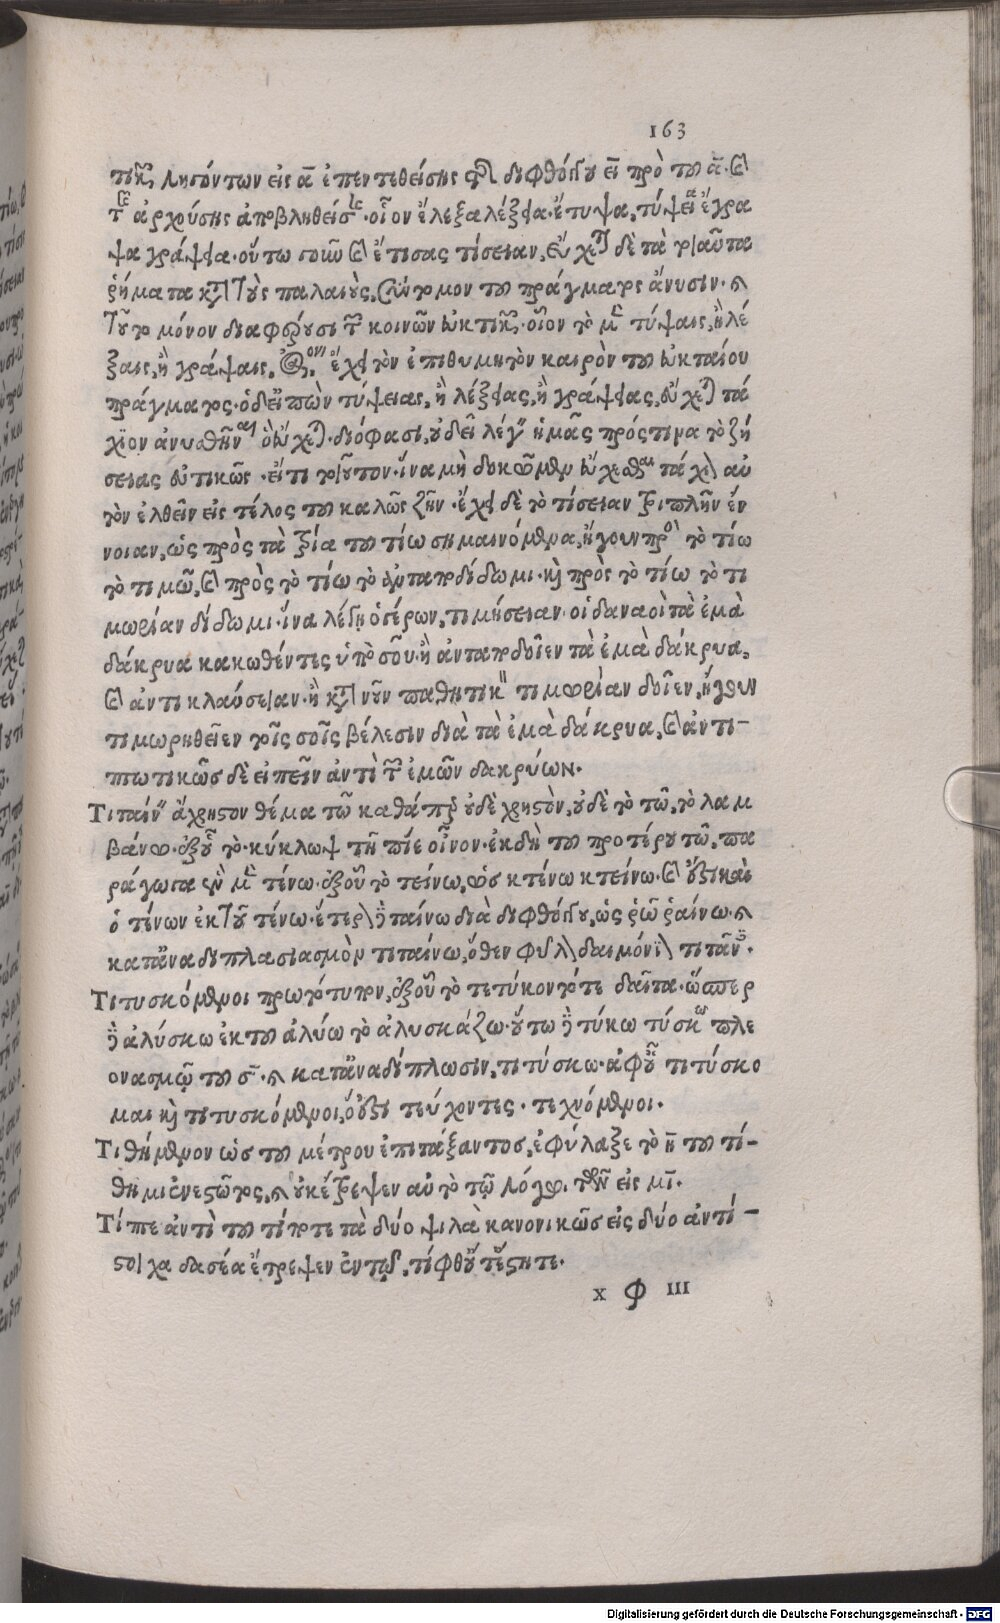 163
ληγόντων εἰς ᾱ ἐπεντεθείσης διφθόγγου ει πρὸ του ᾱ. καὶ
ἀρχούσης ἀποβληθείσης. οἷον ἔλεξα λέξεια. ἔτυψα, τύψεια ἔγρα
ψα γράψεια. οὕτω καὶ ἔτισας τίσειαν, δὲ τὰ τοιαῦτα
ῥήματα κατὰ τοὺς παλαιοὺς, σύντομον του πράγματος ἄνυσιν. καὶ
τούτο μόνον διαφέρουσι τῶν κοινῶν εὐκτικῶν. οἷον τὸ μὲν τύψαις, ἢ λέ
ξαις, ἢ γράψαις, ἔχει τὸν ἐπιθυμητὸν καιρὸν του εὐκταίου
πράγματος. ὁ δ εἰπὼν τύψειας, ἢ λέξειας, ἢ γράψειας, εὔχεται τά
χιον ἀνυσθῆναι ὃ εὔχεται. διό φασι, οὐ δεῖ λέγειν ἡμᾶς πρός τινα τὸ ζή
σειας εὐκτικῶς. ἔστι τοιοῦτον. ἵνα μὴ δοκῶμεν εὔχεσθαι τάχιον αὐ
τὸν ἐλθεῖν εἰς τέλος του καλῶς ζῆν. ἔχει δὲ τὸ τίσειαν τριπλῆν ἔν
νοιαν, ὡς πρὸς τὰ τρία του τίω σημαινόμενα, ἤγουν πρὸς τὸ τίω
τὸ τιμῶ, καὶ πρὸς τὸ τίω τὸ ἀνταποδίδωμι. καὶ πρὸς τὸ τίω τὸ τι
μωρίαν δίδωμι. ἵνα λέγῃ ὁ γέρων, τιμήσειαν οἱ δαναοὶ τὰ ἐμὰ
δάκρυα κακωθέντες ὑπὸ σοῦ. ἢ ἀνταποδοῖεν τὰ ἐμὰ δάκρυα,
καὶ ἀντικλαύσειαν. ἢ κατὰ νοῦν παθητικὸν τιμωρίαν δοῖεν, ἤγουν
τιμωρηθεῖεν τοῖς σοῖς βέλεσιν διὰ τὰ ἐμὰ δάκρυα, καὶ ἀντι-
πτωτικῶς δὲ εἰπεῖν ἀντὶ τῶν ἐμῶν δακρύων.
Τιταίνων ἄχρηστον θέμα τῶ καθάπερ οὐδὲ χρηστὸν, οὐδὲ τὸ τῶ, τὸ λαμ
βάνω. ἐξ οὗ τὸ. κύκλωψ τῆ πίε οἶνον. ἐκ δὴ του προτέρου τῶ, πα
ράγωγα μὲν τένω. ἐξ οὗ τὸ τείνω, ὡς κτένω κτείνω. καὶ
ὁ τένων ἐκ τοῦ τένω. ἕτερον ταίνω διὰ διφθόγγου, ὡς ῥῶ ῥαίνω. καὶ
κατὰ ἀναδιπλασιασμὸν τιταίνω, ὅθεν φῦλον δαιμόνιον τιτᾶνες.
Τιτυσκόμενοι πρωτότυπον, ἐξ οὗ τὸ τετύκοντό τε δαῖτα. ὥσπερ
ἀλύσκω ἐκ του ἀλύω τὸ ἀλυσκάζω. οὕτω τύκω τύσκω πλε
ονασμῷ του σ̄. καὶ κατὰ ἀναδίπλωσιν, τιτύσκω. ἀφ οὗ τιτύσκο
μαι καὶ τιτυσκόμενοι, τεύχοντες. τεχνόμενοι.
Τιθήμενον ὡς του μέτρου ἐπιτάξαντος, ἐφύλαξε τὸ η̄ του τί-
θημι ἐνεστῶτος, καὶ οὐκ ἔτρεψεν αὐτὸ τῷ λόγῳ τῶν εἰς μῑ.
Τίπτε ἀντὶ του τίποτε τὰ δύο ψιλὰ κανονικῶς εἰς δύο ἀντί-
στοιχα δασέα ἔτρεψεν ἐν τῷ, τίφθ οὕτως ἕστητε.
x φ III
Digitalisierung gefördert durch die Deutsche Forschungsgemeinschaft - DFG